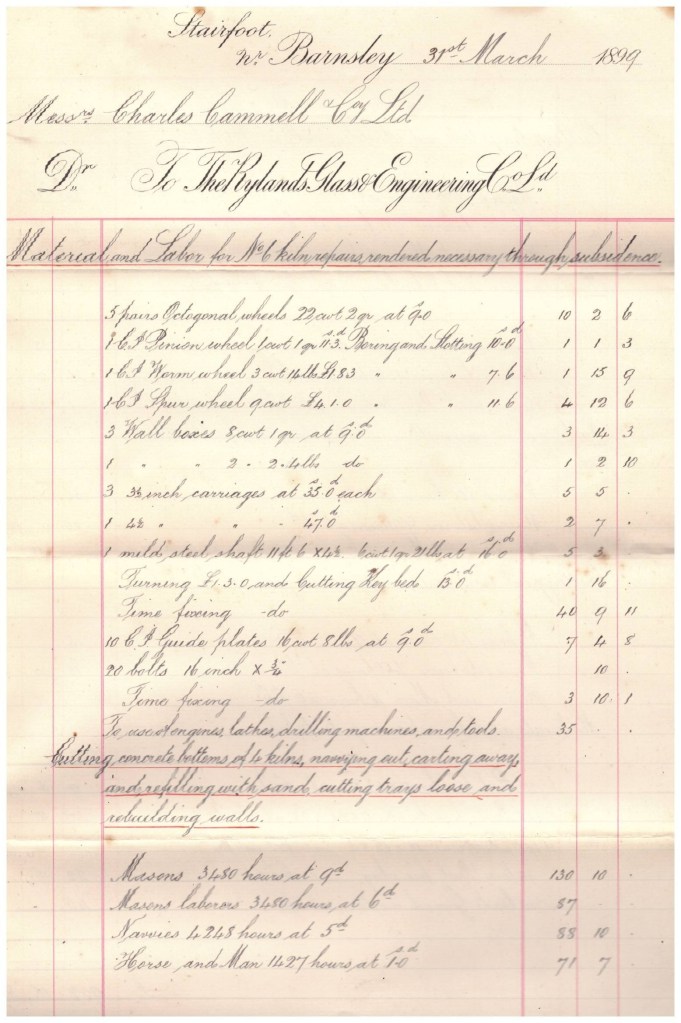 Stairfoot.
Nr. Barnsley 31st March 1899
Messrs Charles Cammell & Coy Ltd
Dr. To The Rylands Glass & Engineering Co. Ld.
Material and Labor for No 6 kiln repairs, rendered necessary through subsidence.
5 pairs Octogonal wheels 22 cwt 2 qr at 9s.0 10 2 6
1 C.I Pinion wheel 1 cwt 1 qr 11s.3d Boring and Slotting 10s.0d 1 1 3
1 C.I Worm wheel 3 cwt 14 lb £1.8.3 " " 7.6 1 15 9
1 C.I Spur wheel 9 cwt £4.1.0 " " 11.6 4 12 6
3 Wall boxes 8 cwt 1 qr at 9s.0d 3 14 3
1 " " 2 - 2 - 4 lbs do 1 2 10
3 3½ inch carriages at 35s.0d each 5 5 .
1 4½ " " - 47s.0d 2 7 .
1 mild steel shaft 11 ft 6 x 4½. 6 cwt 1 qr 21 lbs at 16s.0d 5 3 .
Turning £1.3.0 and Cutting Key beds 13s.0d 1 16 .
Time fixing -do 40 9 11
10 C.I Guide plates 16 cwt 8 lbs at 9s.0d 7 4 8
20 bolts 16 inch x ¾" 10 .
Time fixing -do 3 10 1
To use of engines, lathes, drilling machines, and tools. 35 . .
Cutting concrete bottoms of 4 kilns, navvying out, carting away,
and refilling with sand, cutting trays loose and
rebuilding walls.
Masons 3480 hours at 9d 130 10 .
Masons laborers 3480 hours at 6d 87 .
Navvies 4248 hours at 5d 88 10 .
Horse and Man 1427 hours at 1s.0d 71 7 .